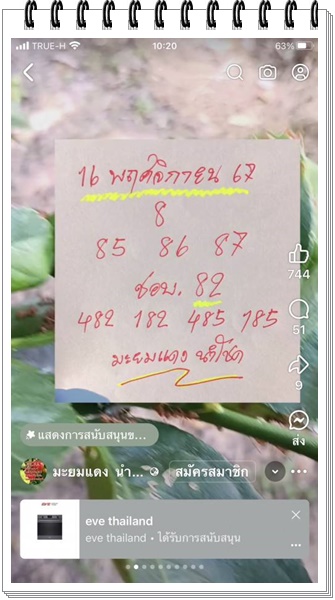 TRUE-H 10:20 63%
16 พฤศจิกายน 67
8
85 86 87
ชอบ. 82
482 182 485 185
มะยมแดง นำโชค
744
51
9
ส่ง
แสดงการสนับสนุนข...
มะยมแดง นำ... สมัครสมาชิก
eve thailand
eve thailand • ได้รับการสนับสนุน